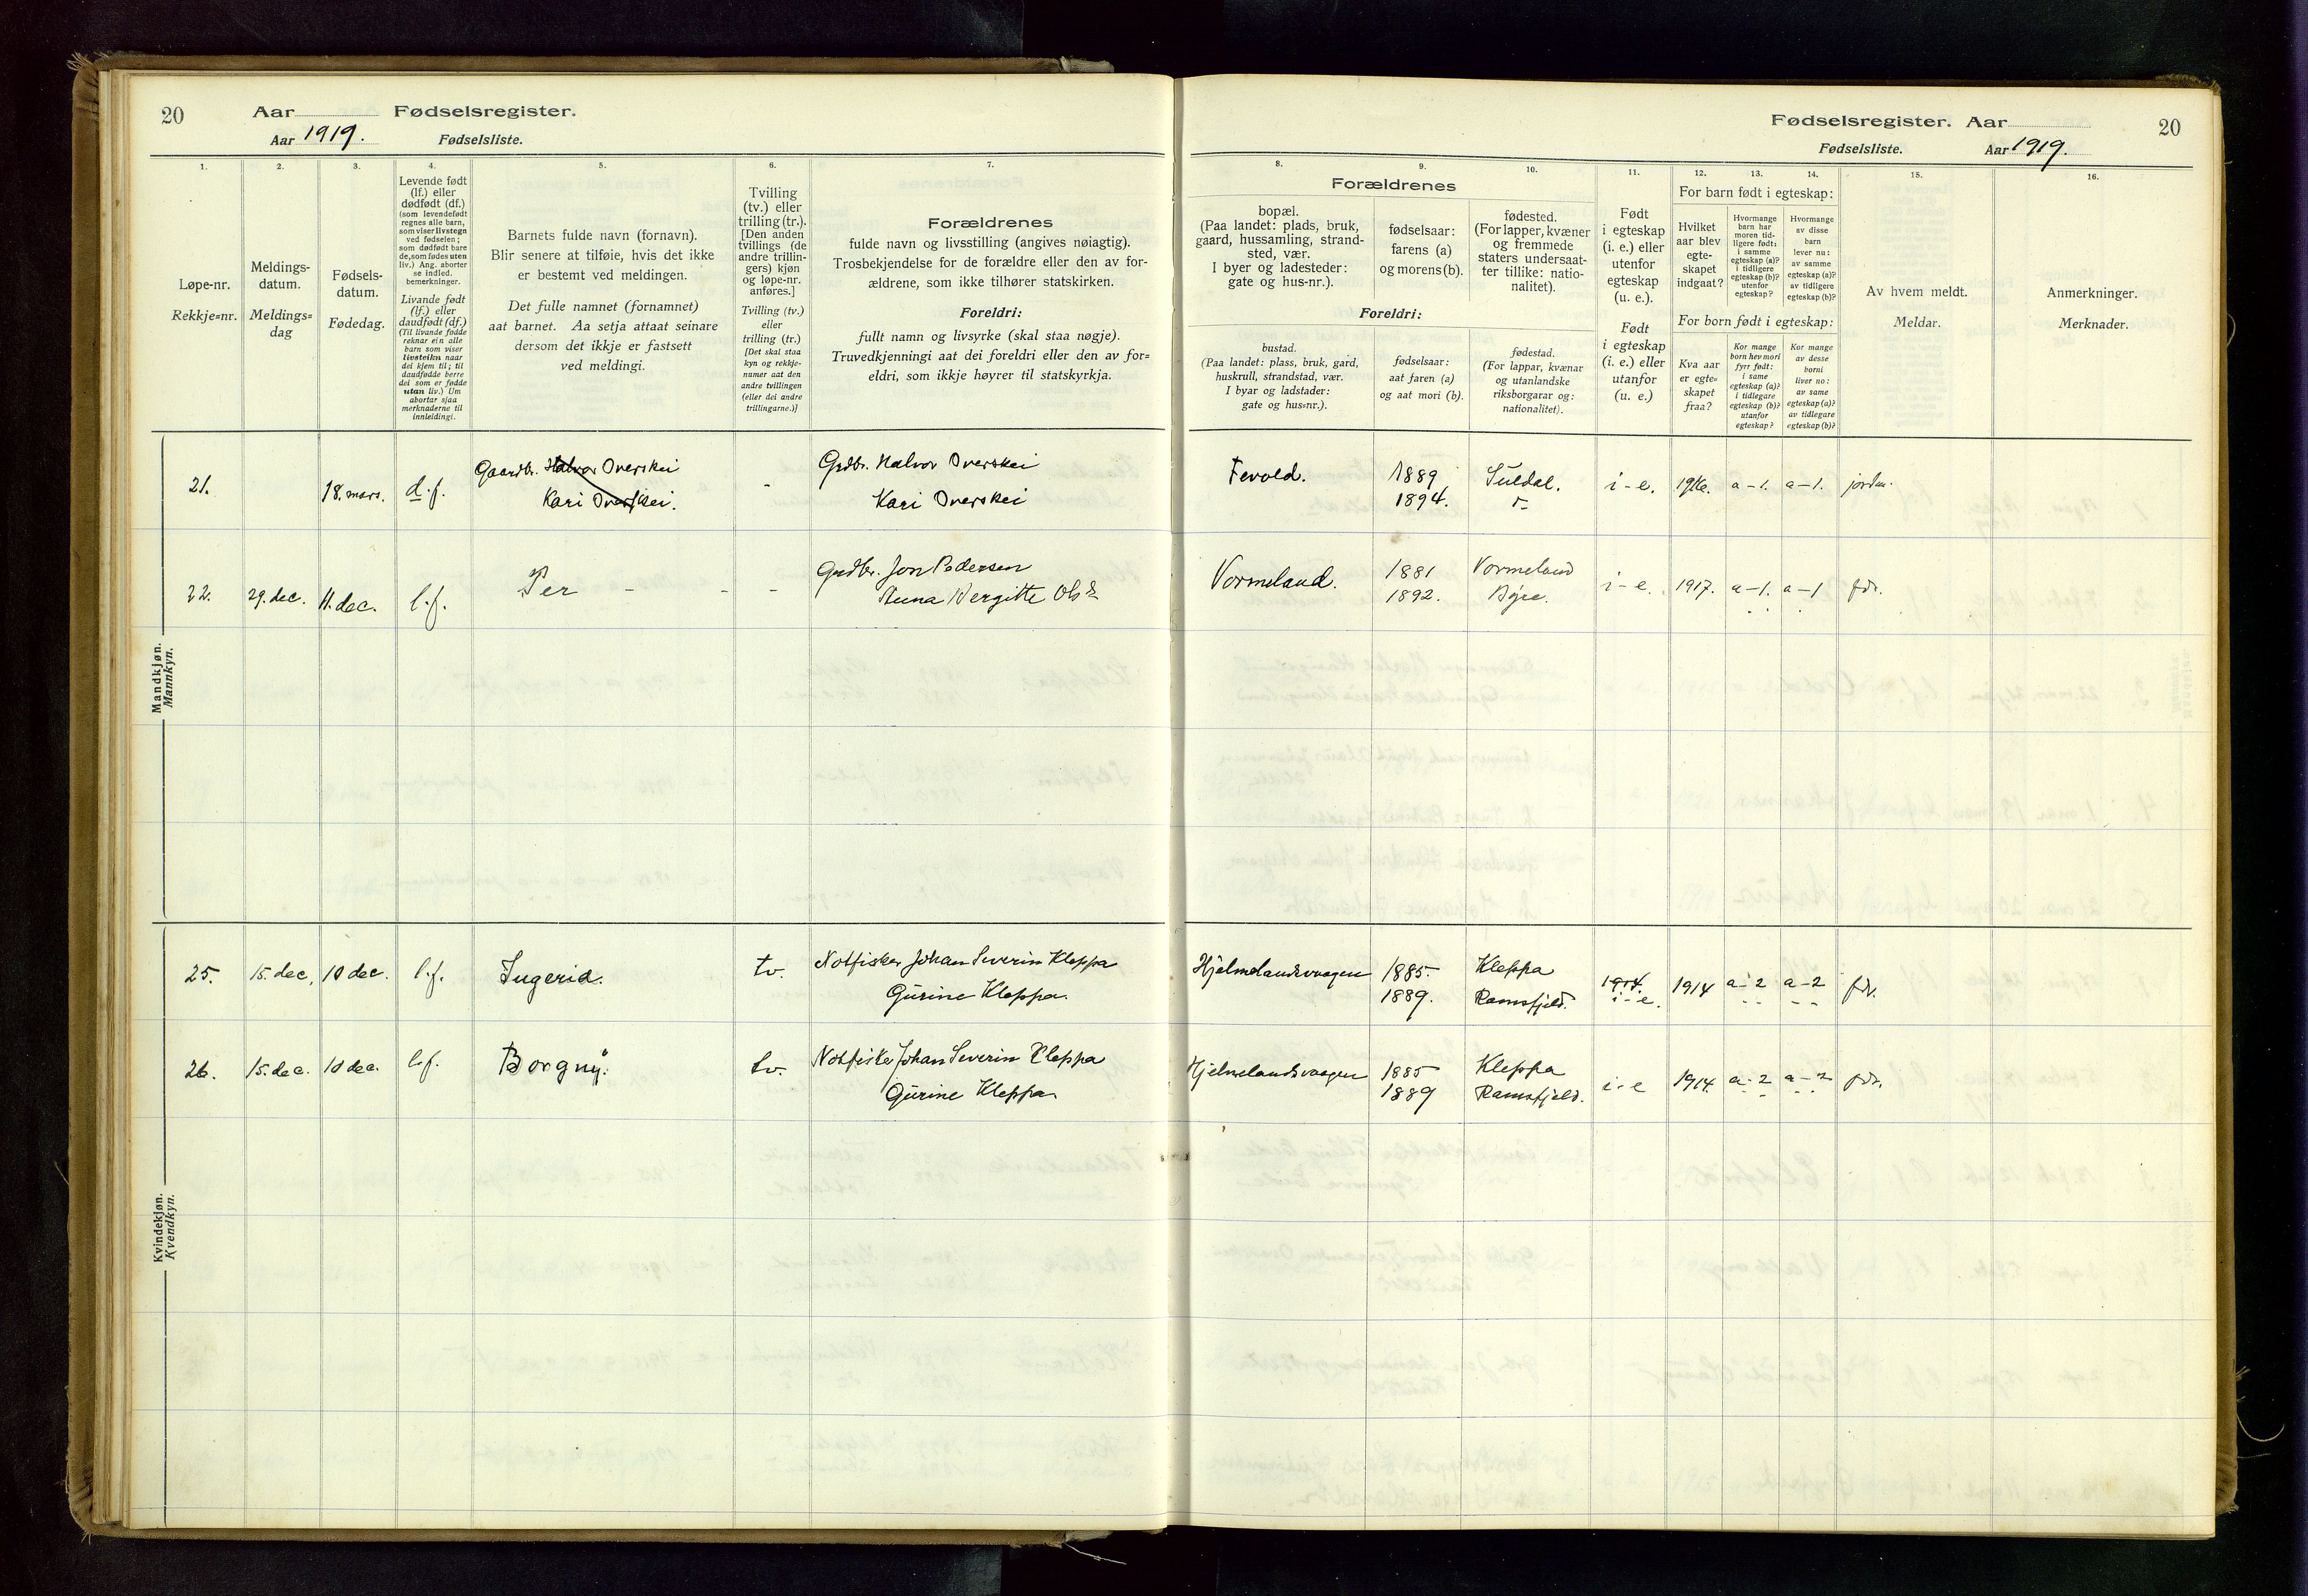 20 Aar Fødselsregister.
Aar 1919. Fødselsliste.
1. 2. 3. 4. 5. 6. 7.
Løpe-nr.
Rekkje=nr.
Meldings-
datum.
Meldings=
dag
Fødsels-
datum.
Fødedag.
Levende født
(lf.) eller
dødfødt (df.)
(som levendefødt
regnes alle barn,
som viser livstegn
ved fødselen;
som dødfødt bare
de, som fødes uten
liv.) Ang. aborter
se indled.
bemerkninger.
Livande født
(lf.) eller
daudfødt (df.)
(Til livande fødde
reknar ein alle
barn som viser
livsteikn naar
dei kjem til; til
daudfødde berre
dei som er fødde
utan liv.) Um
abortar sjaa
merknaderne til
innleidingi.
Barnets fulde navn (fornavn).
Blir senere at tilføie, hvis det ikke
er bestemt ved meldingen.
Det fulle namnet (fornamnet)
aat barnet. Aa setja attaat seinare
dersom det ikkje er fastsett
ved meldingi.
Tvilling
(tv.) eller
trilling (tr.).
[Den anden
tvillings (de
andre trillin-
gers) kjøn
og løpe-nr.
anføres.]
Tvilling (tv.)
eller
trilling (tr.)
[Det skal staa
kyn og rekkje-
numer aat den
andre tvillingen
(eller dei andre
trillingarne.)]
Forældrenes
fulde navn og livsstilling (angives nøiagtig).
Trosbekjendelse for de forældre eller den av for-
ældrene, som ikke tilhører statskirken.
Foreldri:
fullt namn og livsyrke (skal staa nøgje).
Truvedkjenningi aat dei foreldri eller den av for=
eldri, som ikkje høyrer til statskyrkja.
Mandkjøn.
Mannkyn.
21. 18. mars. d.f. Gaardbr. Halvor Overskei - Grdbr. Halvor Overskei
Kari Overskei. Kari Overskei
22. 29. dec. 11. dec. l.f. Per - - - Grdbr. Jon Pedersen
Anna Bergitte Olsdr
Kvindekjøn.
Kvendkyn.
25. 15. dec. 10 dec. l.f. Ingerid. tv. Notfisker Johan Severin Kleppa
Gurine Kleppa.
26. 15. dec. 10 dec. l.f. Borgny. tv. Notfisker Johan Severin Kleppa
Gurine Kleppa.
Fødselsregister. Aar 20
Fødselsliste. Aar 1919.
8. 9. 10. 11. 12. 13. 14. 15. 16.
Forældrenes
bopæl.
(Paa landet: plads, bruk,
gaard, hussamling, strand-
sted, vær.
I byer og ladesteder:
gate og hus-nr.).
fødselsaar:
farens (a)
og morens (b).
fødested.
(For lapper, kvæner
og fremmede
staters undersaat-
ter tillike: natio-
nalitet).
Foreldri:
bustad.
(Paa landet: plass, bruk, gard,
huskrull, strandstad, vær.
I byar og ladstader:
gate og hus=nr.).
fødselsaar:
aat faren (a)
og aat mori (b).
fødestad.
(For lappar, kvænar
og utanlandske
riksborgarar og:
nationalitet).
Født
i egteskap
(i. e.) eller
utenfor
egteskap
(u. e.).
Født
i egteskap
(i. e.) eller
utanfor
(u. e.)
For barn født i egteskap:
Hvilket
aar blev
egte-
skapet
indgaat?
Hvormange
barn har
moren tid-
ligere født:
i samme
egteskap (a)?
i tidligere
egteskap (b)?
utenfor
egteskap?
Hvormange
av disse
barn
lever nu:
av samme
egteskap (a)?
av tidligere
egteskap (b)?
For born født i egteskap:
Kva aar
er egte=
skapet
fraa?
Kor mange
born hev mori
fyrr født:
i same
egteskap (a)?
i tidlegare
egteskap (b)?
utanfor
egteskap?
Kor mange
av desse
borni
liver no:
av same
egteskap (a)?
av tidlegare
egteskap (b)?
Av hvem meldt.
Meldar.
Anmerkninger.
Merknader.
Tevold. 1889 Suldal. i - e. 1916. a - 1. a - 1. jordm.
1894.
Vormeland. 1881 Vormeland i - e. 1917. a - 1. a - 1 fdr.
1892. Børe.
Hjelmelandsvaagen 1885. Kleppa 1914. 1914 a - 2 a - 2 fdr.
1889. Ramsfjeld. i - e.
Hjelmelandsvaagen 1885 Kleppa i - e 1914. a - 2 a - 2 fdr.
1889 Ramsfjeld.